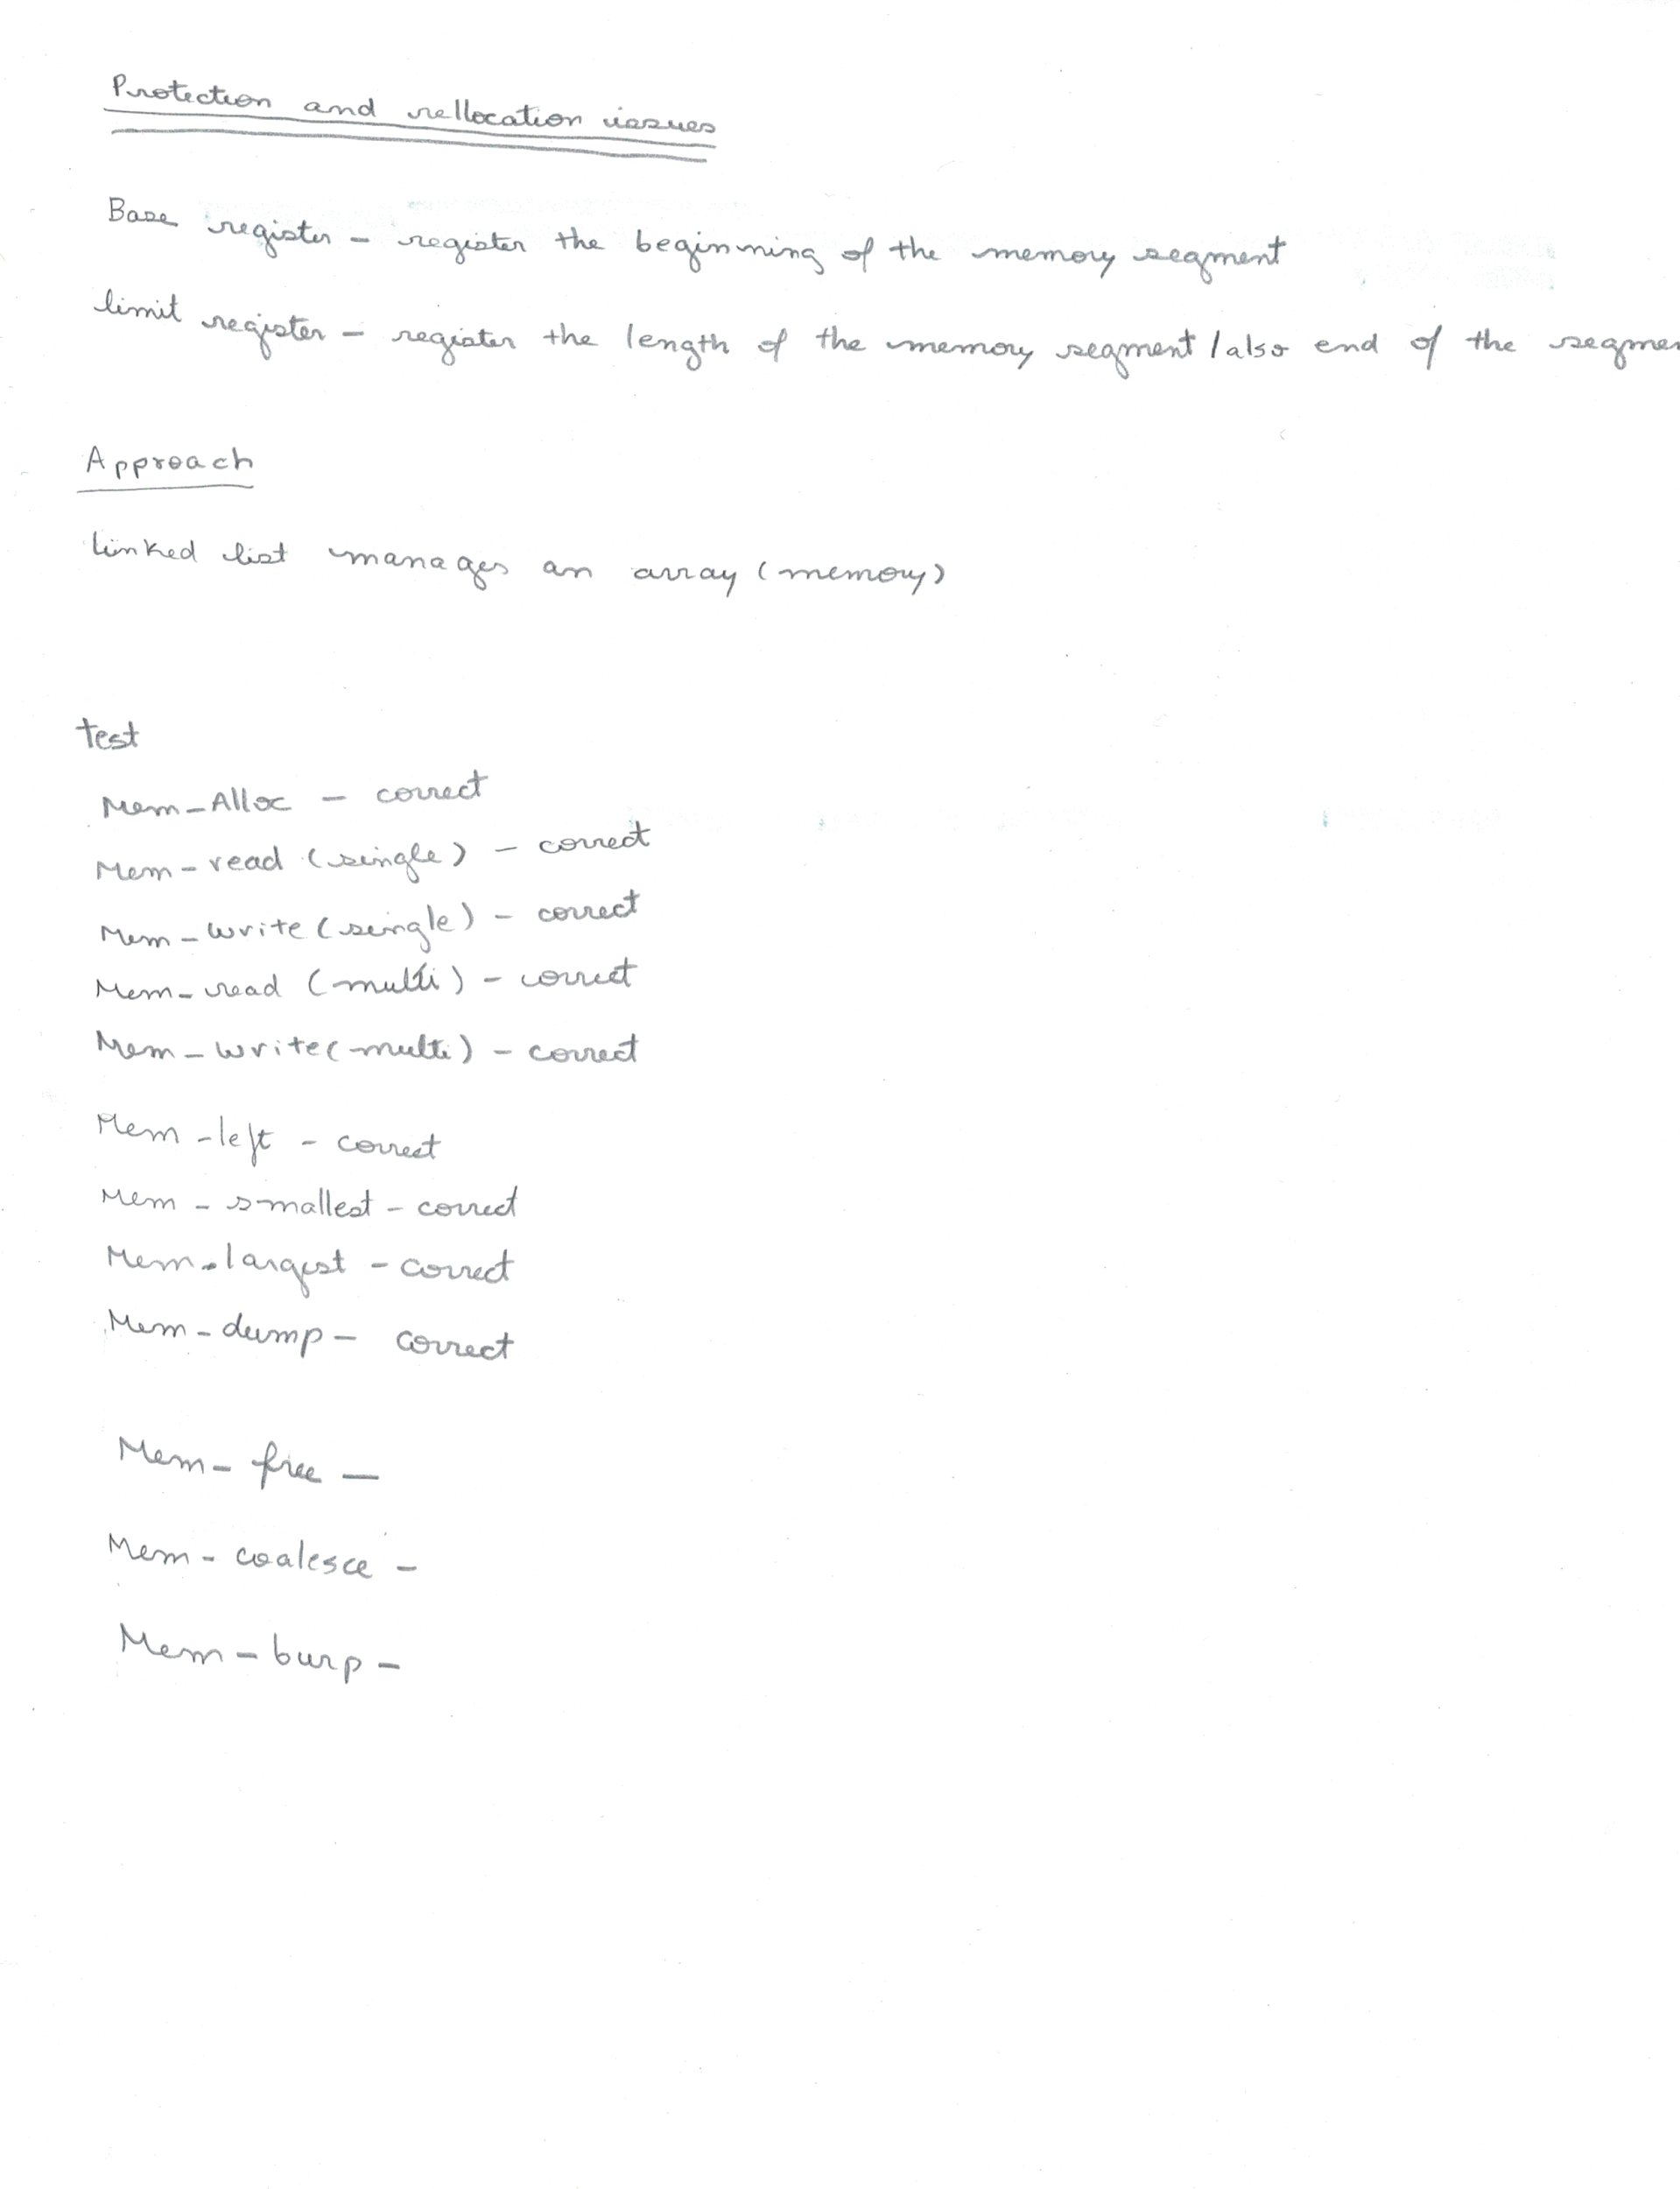 Protection and rellocation issues
Base register - register the beginning of the memory segment
limit register - register the length of the memory segment / also end of the segmen
Approach
Linked list manages an array (memory)
test
Mem-Alloc - correct
Mem-read (single) - correct
Mem-write (single) - correct
Mem-read (multi) - correct
Mem-write (multi) - correct
Mem-left - correct
Mem-smallest - correct
Mem-largest - correct
Mem-dump - correct
Mem-free -
Mem-coalesce -
Mem-burp -